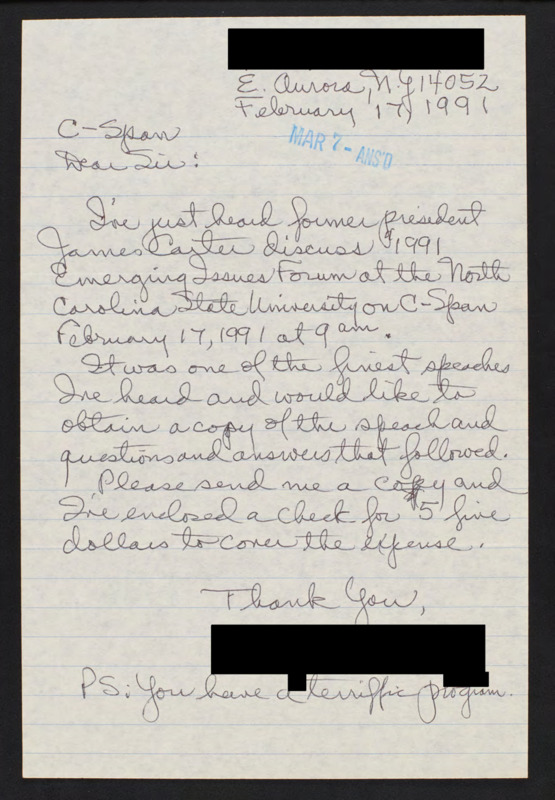 E. Aurora, N.Y 14052
February 17, 1991
MAR 7 - ANS'D
C-Span
Dear Sir:
I've just heard former president
James Carter discuss 1991
Emerging Issues Forum at the North
Carolina State University on C-Span
February 17, 1991 at 9 am.
It was one of the finest speaches
I've heard and would like to
obtain a copy of the speach and
questions and answers that followed.
Please send me a copy and
I've enclosed a check for $5 five
dollars to cover the expense.
Thank You,
PS: You have a terriffic program.